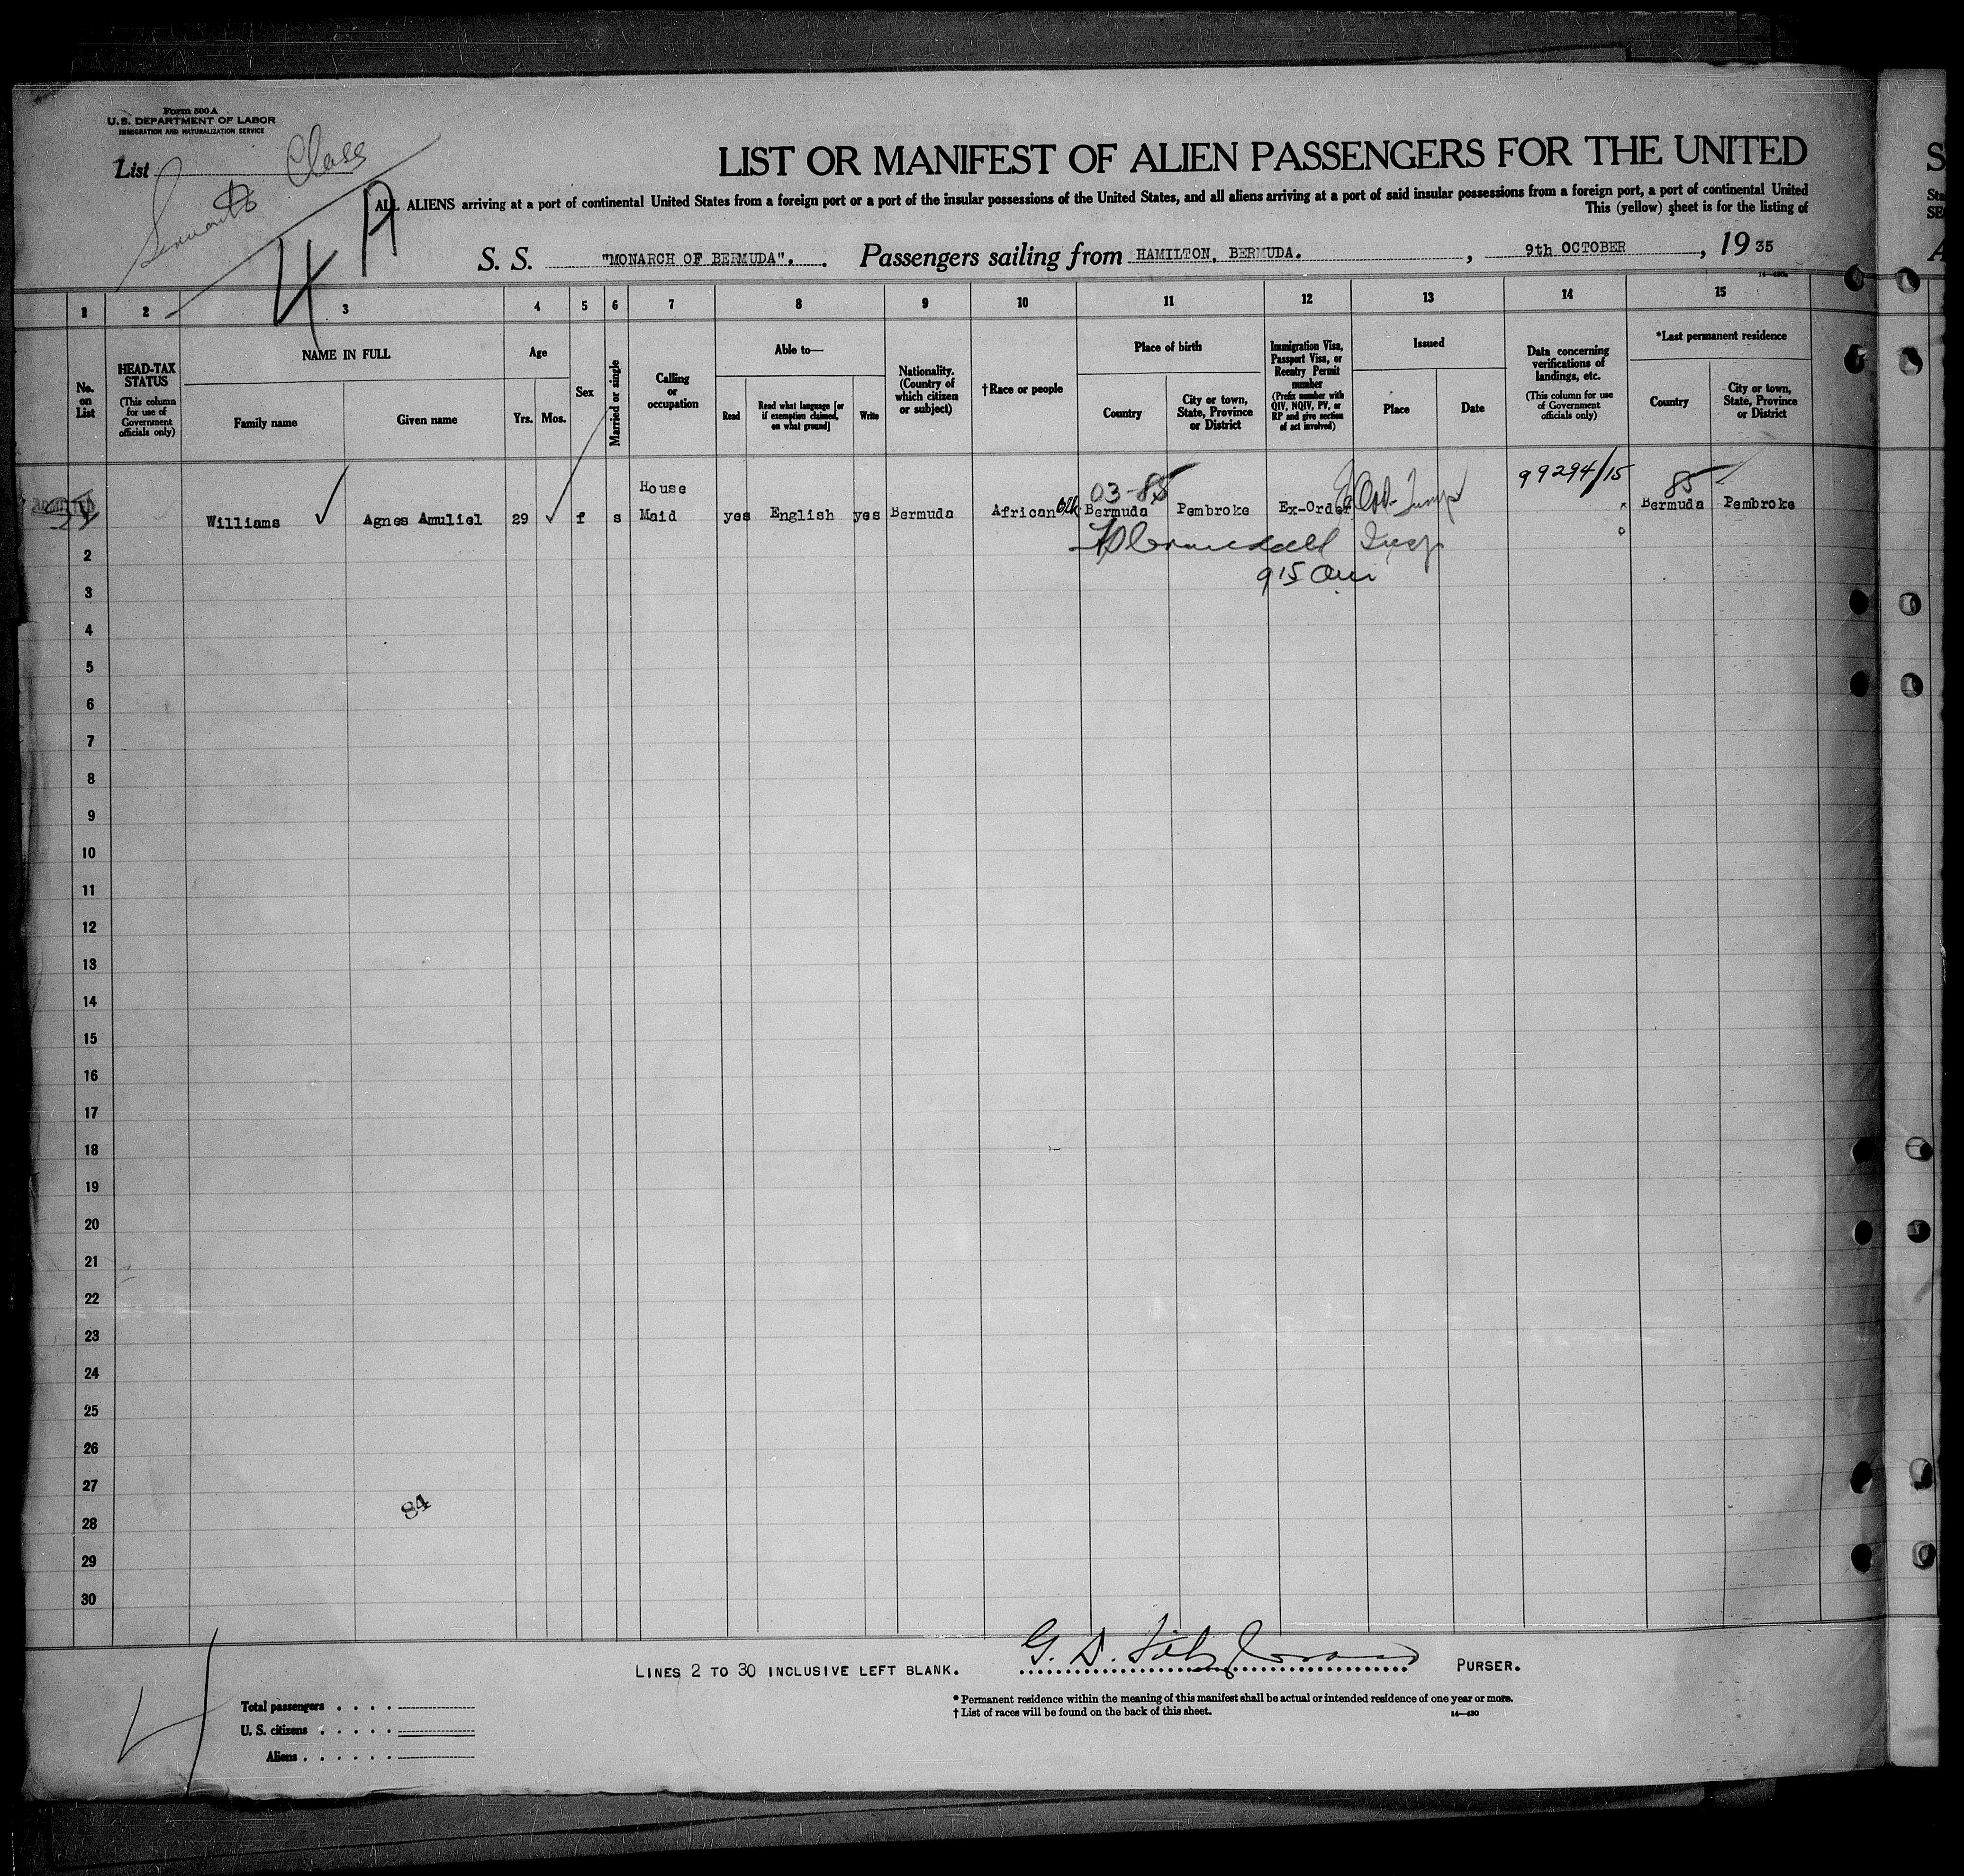 Form 500 A
U.S. DEPARTMENT OF LABOR
IMMIGRATION AND NATURALIZATION SERVICE
List
Servants Class
4 A
LIST OR MANIFEST OF ALIEN PASSENGERS FOR THE UNITED
ALL ALIENS arriving at a port of continental United States from a foreign port or a port of the insular possessions of the United States, and all aliens arriving at a port of said insular possessions from a foreign port, a port of continental United
This (yellow) sheet is for the listing of
S. S. "MONARCH OF BERMUDA". Passengers sailing from HAMILTON, BERMUDA. , 9th OCTOBER , 19 35
1 2 3 4 5 6 7 8 9 10 11 12 13 14 15
No. on List
HEAD-TAX STATUS (This column for use of Government officials only)
NAME IN FULL
Family name
Given name
Age
Yrs. Mos.
Sex
Married or single
Calling or occupation
Able to—
Read
Read what language [or if exemption claimed, on what ground]
Write
Nationality. (Country of which citizen or subject)
†Race or people
Place of birth
Country
City or town, State, Province or District
Immigration Visa, Passport Visa, or Reentry Permit number (Prefix number with QIV, NQIV, PV, or RP and give section of act involved)
Issued
Place
Date
Data concerning verifications of landings, etc. (This column for use of Government officials only)
*Last permanent residence
Country
City or town, State, Province or District
ADMITTED
House 03-85 99294/15 85
Williams Agnes Amuliel 29 f s Maid yes English yes Bermuda African blk Bermuda Pembroke Ex-Order Bermuda Pembroke
Insp
915 am
2
3
4
5
6
7
8
9
10
11
12
13
14
15
16
17
18
19
20
21
22
23
24
25
26
27
84
28
29
30
LINES 2 TO 30 INCLUSIVE LEFT BLANK. G. D. PURSER.
4
Total passengers . . . .
U. S. citizens . . . . .
Aliens . . . . . .
* Permanent residence within the meaning of this manifest shall be actual or intended residence of one year or more.
† List of races will be found on the back of this sheet. 14—430
S
Sta
SE
A